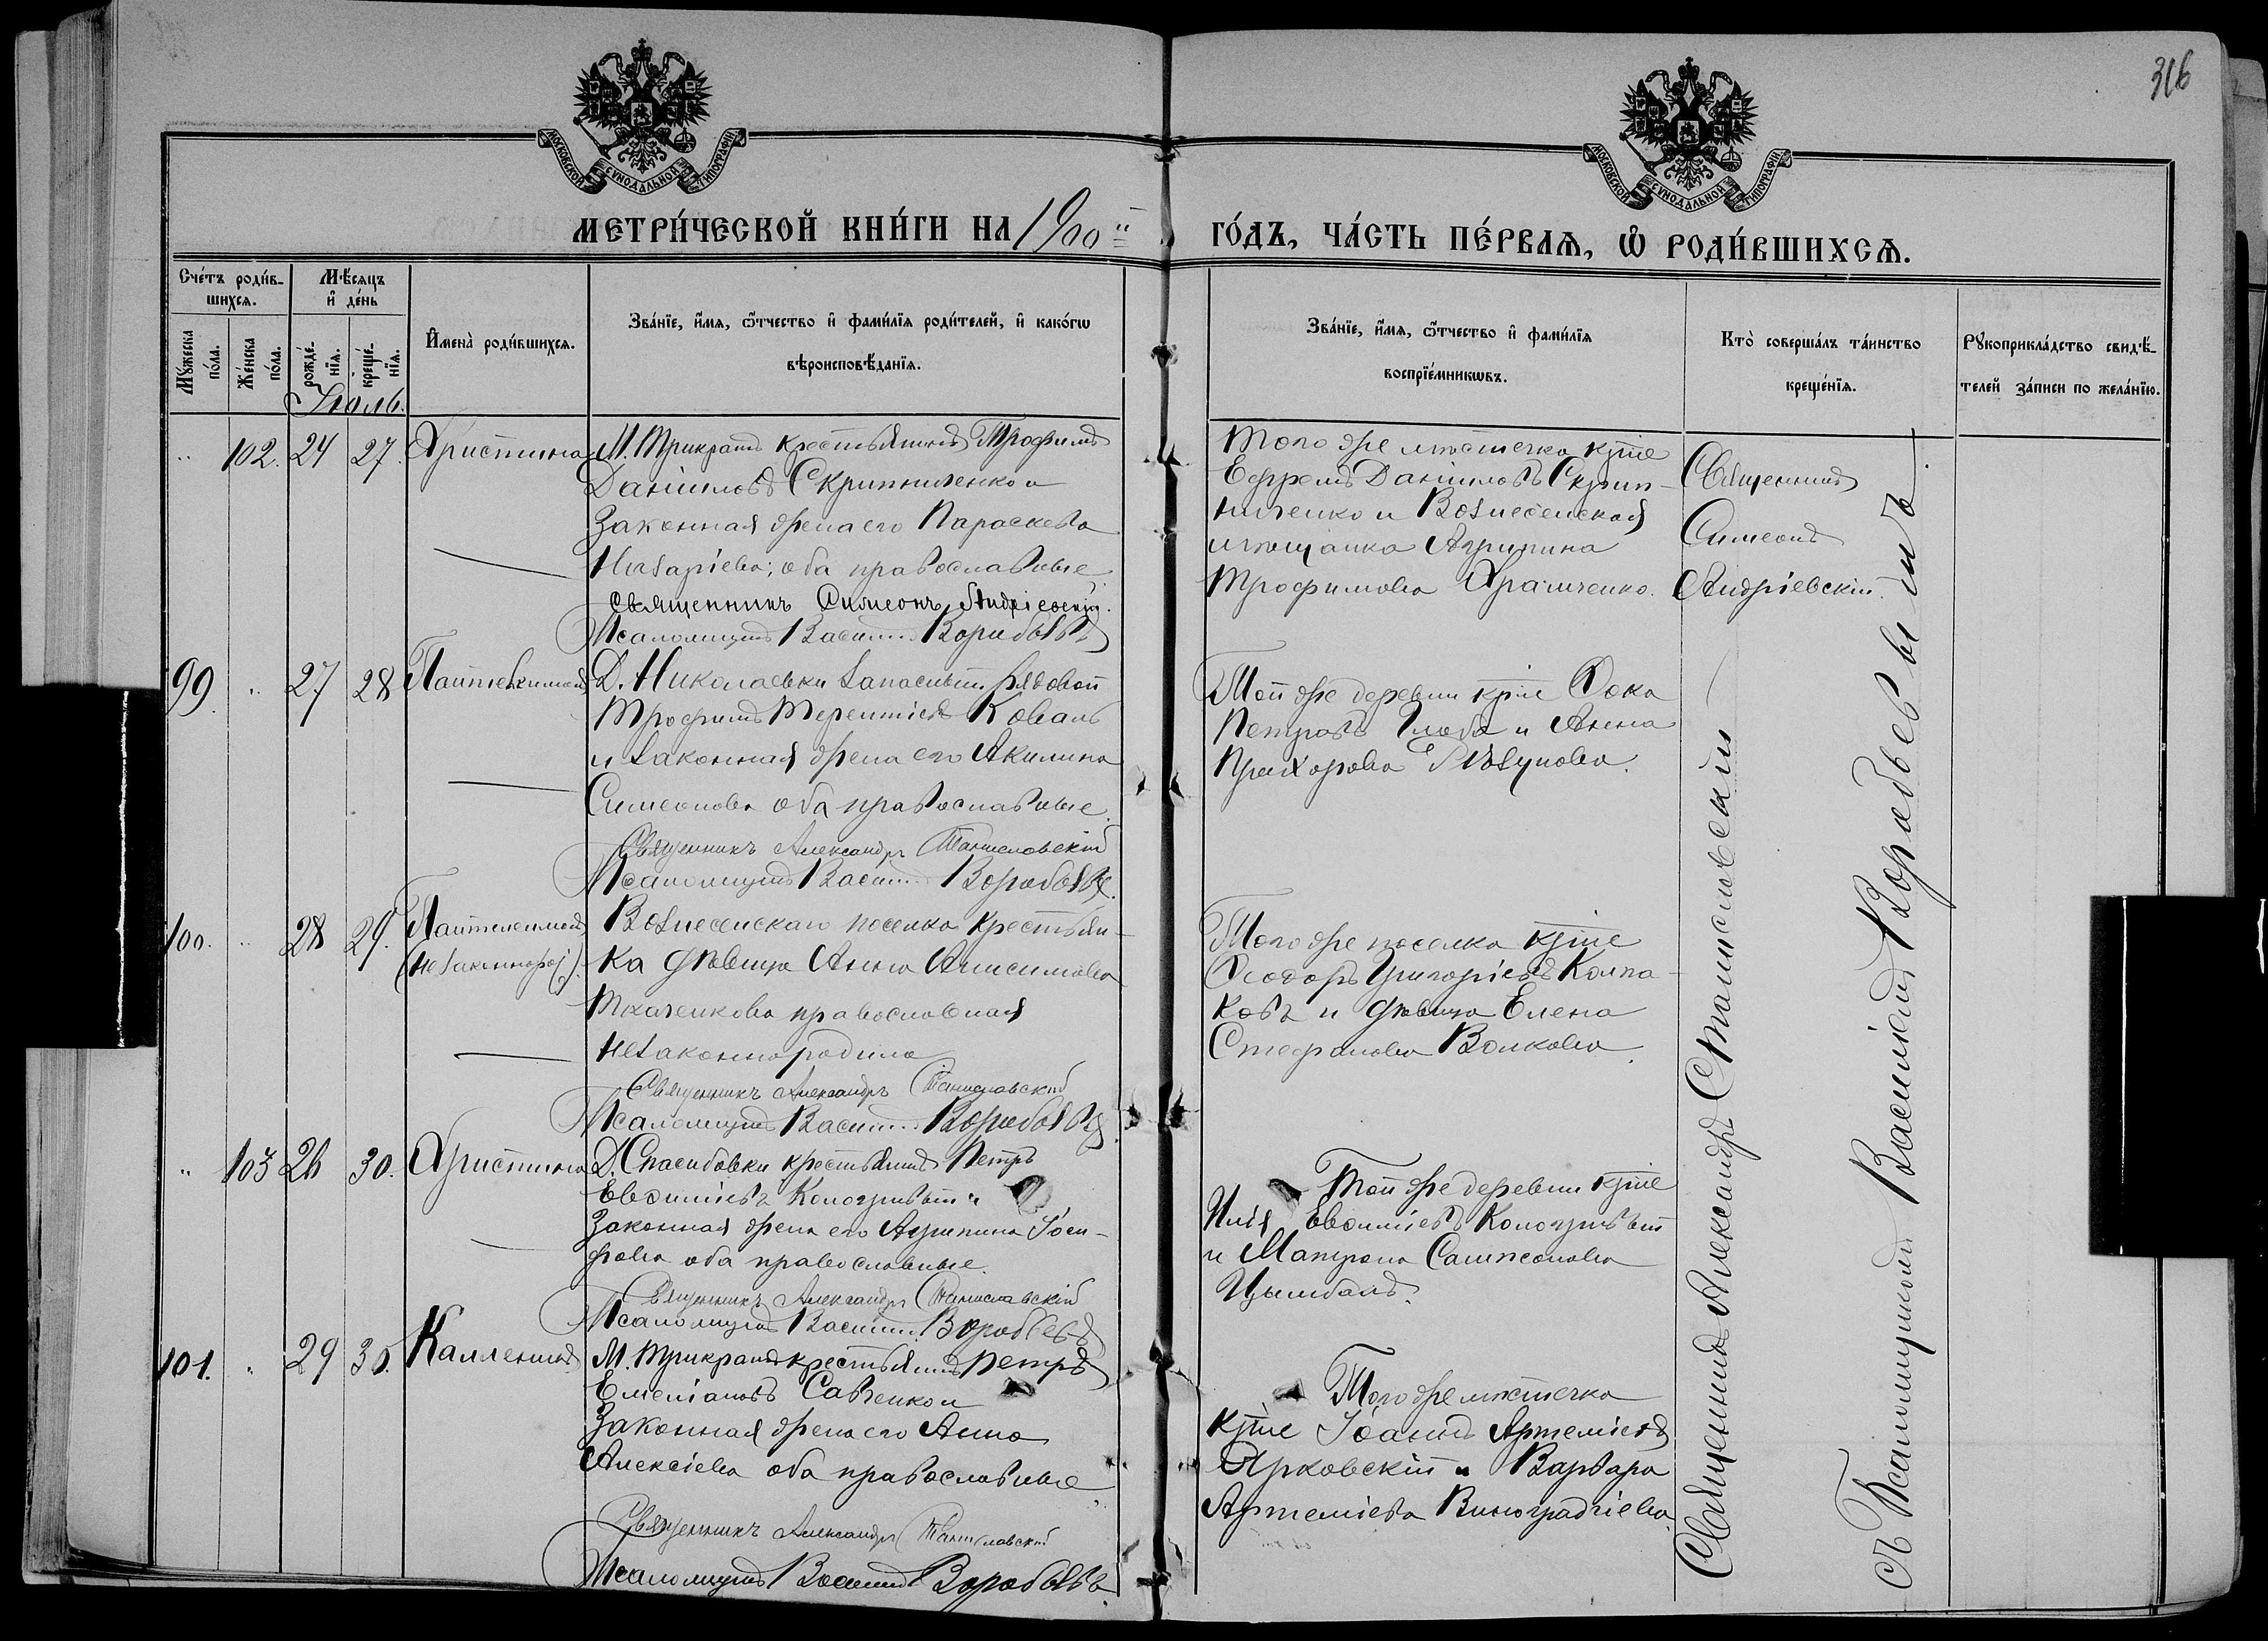 316
МОСКОВСКОЙ СѴНОДАЛЬНОЙ ТИПОГРАФІИ
МОСКОВСКОЙ СѴНОДАЛЬНОЙ ТИПОГРАФІИ
МЕТРИ́ЧЕСКОЙ КНИ́ГИ НА 1900й
ГО́ДЪ, ЧА́СТЬ ПЕ́РВАѦ, Ѡ РОДИ́ВШИХСѦ.
Сче́тъ роди́в-
шихсѧ.
Мꙋ́жеска по́ла.
Же́нска по́ла.
Мѣ́сѧцъ
и҆ де́нь
рожде́-
нїѧ.
креще́-
нїѧ.
Іюль.
И҆мена̀ роди́вшихсѧ.
Зва́нїе, и҆́мѧ, ѻ҆́тчество и҆ фами́лїѧ роди́телей, и҆ како́гѡ
вѣроисповѣ́данїѧ.
Зва́нїе, и҆́мѧ, ѻ҆́тчество и҆ фами́лїѧ
воспрїе́мникѡвъ.
Кто̀ соверша́лъ та́инство
креще́нїѧ.
Рꙋкоприкла́дство свидѣ́-
телей за́писи по жела́нїю.
„ 102. 24 27. Христина
М. Трикратъ крестьянинъ Трофимъ
Даніиловъ Скрипниченко и
Законная жена его Параскева
Назаріева; оба православные
Священникъ Симеонъ Андріевскій.
Псаломщикъ Василій Воробьевъ
Того же мѣстечка кр̃не
Ефремъ Даніиловъ Скрип-
ниченко и Вознесенская
мѣщанка Агрипина
Трофимова Храмченко.
Священникъ
Симеонъ
Андріевскій.
99. „ 27 28 Пантелеимонъ
Д. Николаевки запасный рядовой
Трофимъ Терентіевъ Коваль
и законная жена его Акилина
Симеонова оба православные.
Священникъ Александръ Станиславскій
Псаломщикъ Василій Воробьевъ.
Той же деревни кр̃не Ѳока
Петровъ Глоба и Анна
Прихорова
100. „ 28 29. Пантелеимонъ
(незаконнорож.)
Вознесенскаго поселка крестьян-
ка дѣвица Анна Анисимова
Ткаченкова православная
незаконно родила
Священникъ Александръ Станиславскій
Псаломщикъ Василій Воробьевъ
Того же поселка кр̃не
Ѳеодоръ Григоріевъ Колпа-
ковъ и дѣвица Елена
Стефанова Волкова.
„ 103 26 30. Христина
Д. Спасибовки крестьянинъ Петръ
Евѳиміевъ Кологривый и
Законная жена его Агрипина Іоси-
фова оба православные.
Священникъ Александръ Станиславскій
Псаломщикъ Василій Воробьевъ
Той же деревни кр̃не
Илія Евѳиміевъ Кологривый
и Матрона Сампсонова
Цымбалъ.
101. „ 29 30. Каллиникъ
М. Трикратъ крестьянинъ Петръ
Емеліановъ Савенко и
Законная жена его Анна
Алексіева оба православные
Священникъ Александръ Станиславскій
Псаломщикъ Василій Воробьевъ.
Того же мѣстечка
кр̃не Іоаннъ Артеміевъ
Ярковскій и Варвара
Артеміева Виноградчіева
Священникъ Александръ Станиславскій
съ Псаломщикомъ Василіемъ Воробьевымъ.